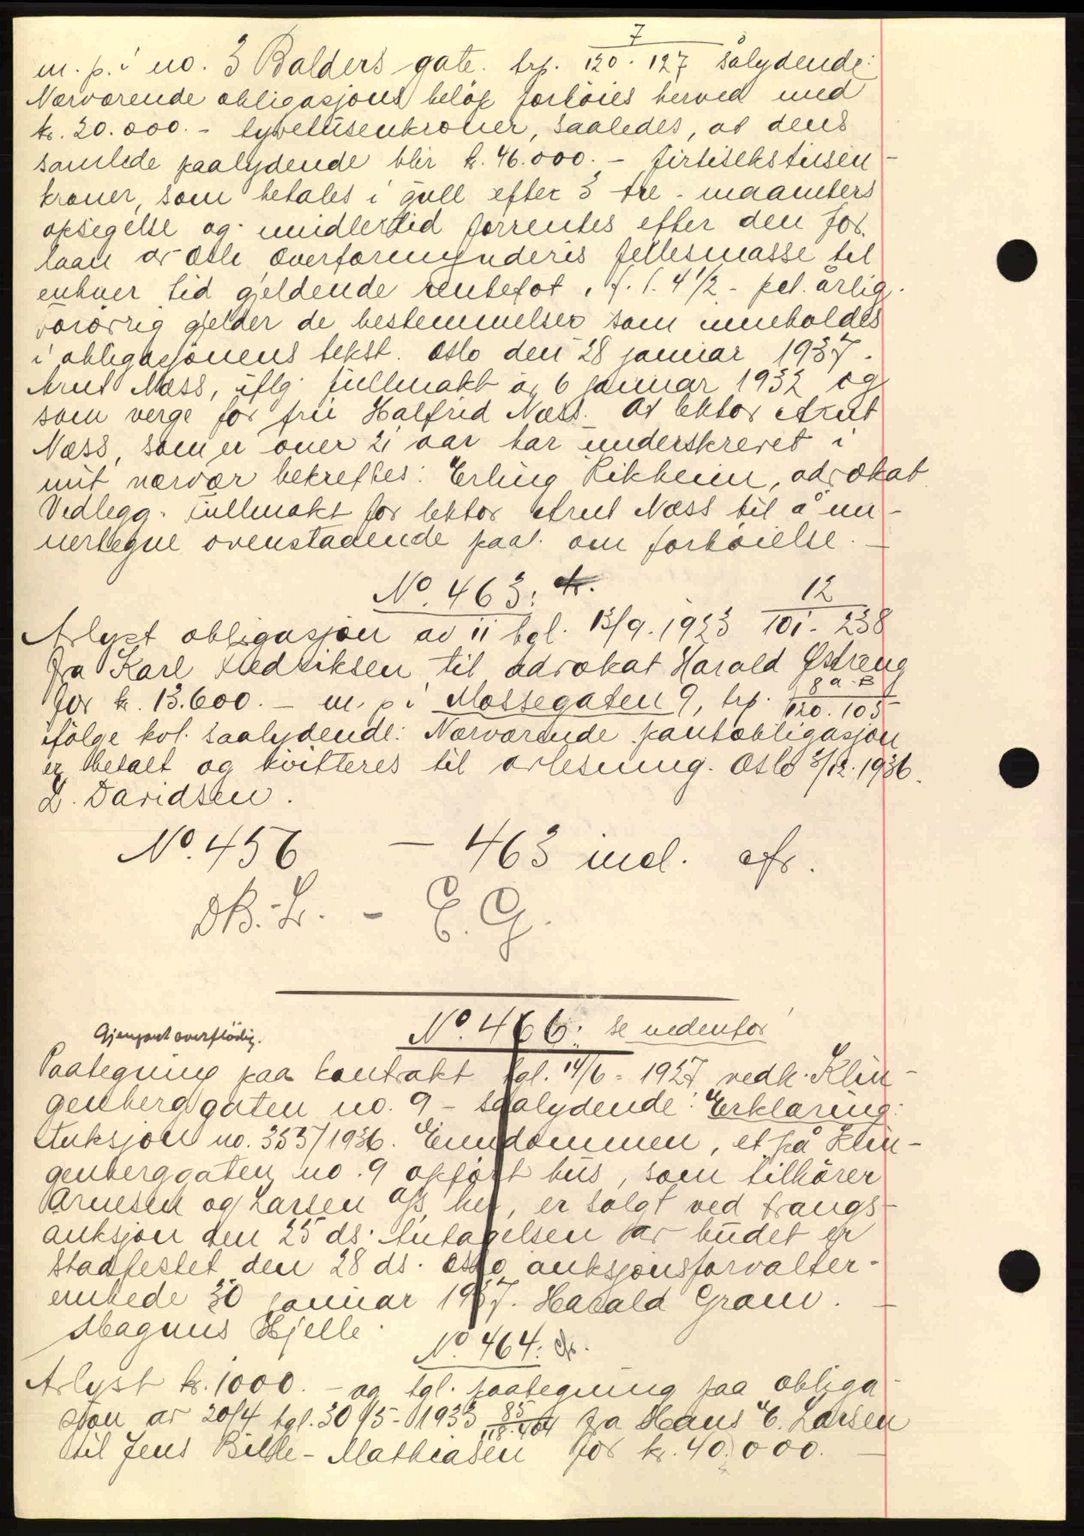 m. p. i no. 3 Balders gate. trp. 7/120-127 sålydende:
Nærværende obligasjons beløp forhöies herved med
kr. 20.000.- tyvetusenkroner, saaledes, at dens
samlede paalydende blir k. 46.000.- førtisekstusen-
kroner, som betales i gull efter 3 tre - maaneders
opsigelse og imidlertid forrentes efter den for
laan av Oslo Overformynderis fellesmasse til
enhver tid gjeldende rentefot, f. t. 4 1/2 - pct. årlig.
Forövrig gjelder de bestemmelser som inneholdes
i obligasjonens tekst. Oslo den 28 januar 1937.
Arnt Næss, iflg. fullmakt av 6 januar 1932 og
som verge for frü Halfrid Næss. At lektor Arnt
Næss, som er over 21 aar har underskrevet i
mitt nærvær bekreftes: Erling Rikheim, advokat
Vedlegg. Fullmakt for lektor Arnt Næss til å un-
dertegne ovenstaaende paat. om forhöielse. —
No. 463: fr.
Avlyst obligasjon av 11 tgl. 13/9. 1923 12/101-238
fra Karl Fredriksen til advokat Harald Østreng
for k. 13.600.- m. p. i Mossegaten 9, trp. 8 a-B/120.105
ifölge kvl. saalydende: Nærværende pantobligasjon
er betalt og kvitteres til avlesning. Oslo 3/12. 1936.
L. Davidsen.
No. 456 — 463 incl. afr.
DB.-L. - E. G.
Gjenpart overflödig.
No. 466: se nedenfor
Paategning paa kontrakt tgl. 14/6 - 1927 vedk. Klin-
genberggaten no. 9 - saalydende: Erklæring:
Auksjon no. 353/1936. Eiendommen, et på Klin-
genberggaten no. 9 opfört hus, som tilhörer
Arnesen og Larsen A/S, her, er solgt ved tvangs-
auksjon den 25 ds. Antagelsen av budet er
stadfestet den 28 ds. Oslo auksjonsforvalter-
embede 30 januar 1937. Harald Gram. —
Magnus Hjelle.
No. 464: afr.
Avlyst kr. 1000.- og tgl. paategning paa obliga-
sjon av 20/4 tgl. 30/5-1933 85/118.404 fra Hans E. Larsen
til Jens Bilke-Mathiasen for kr. 40.000. —